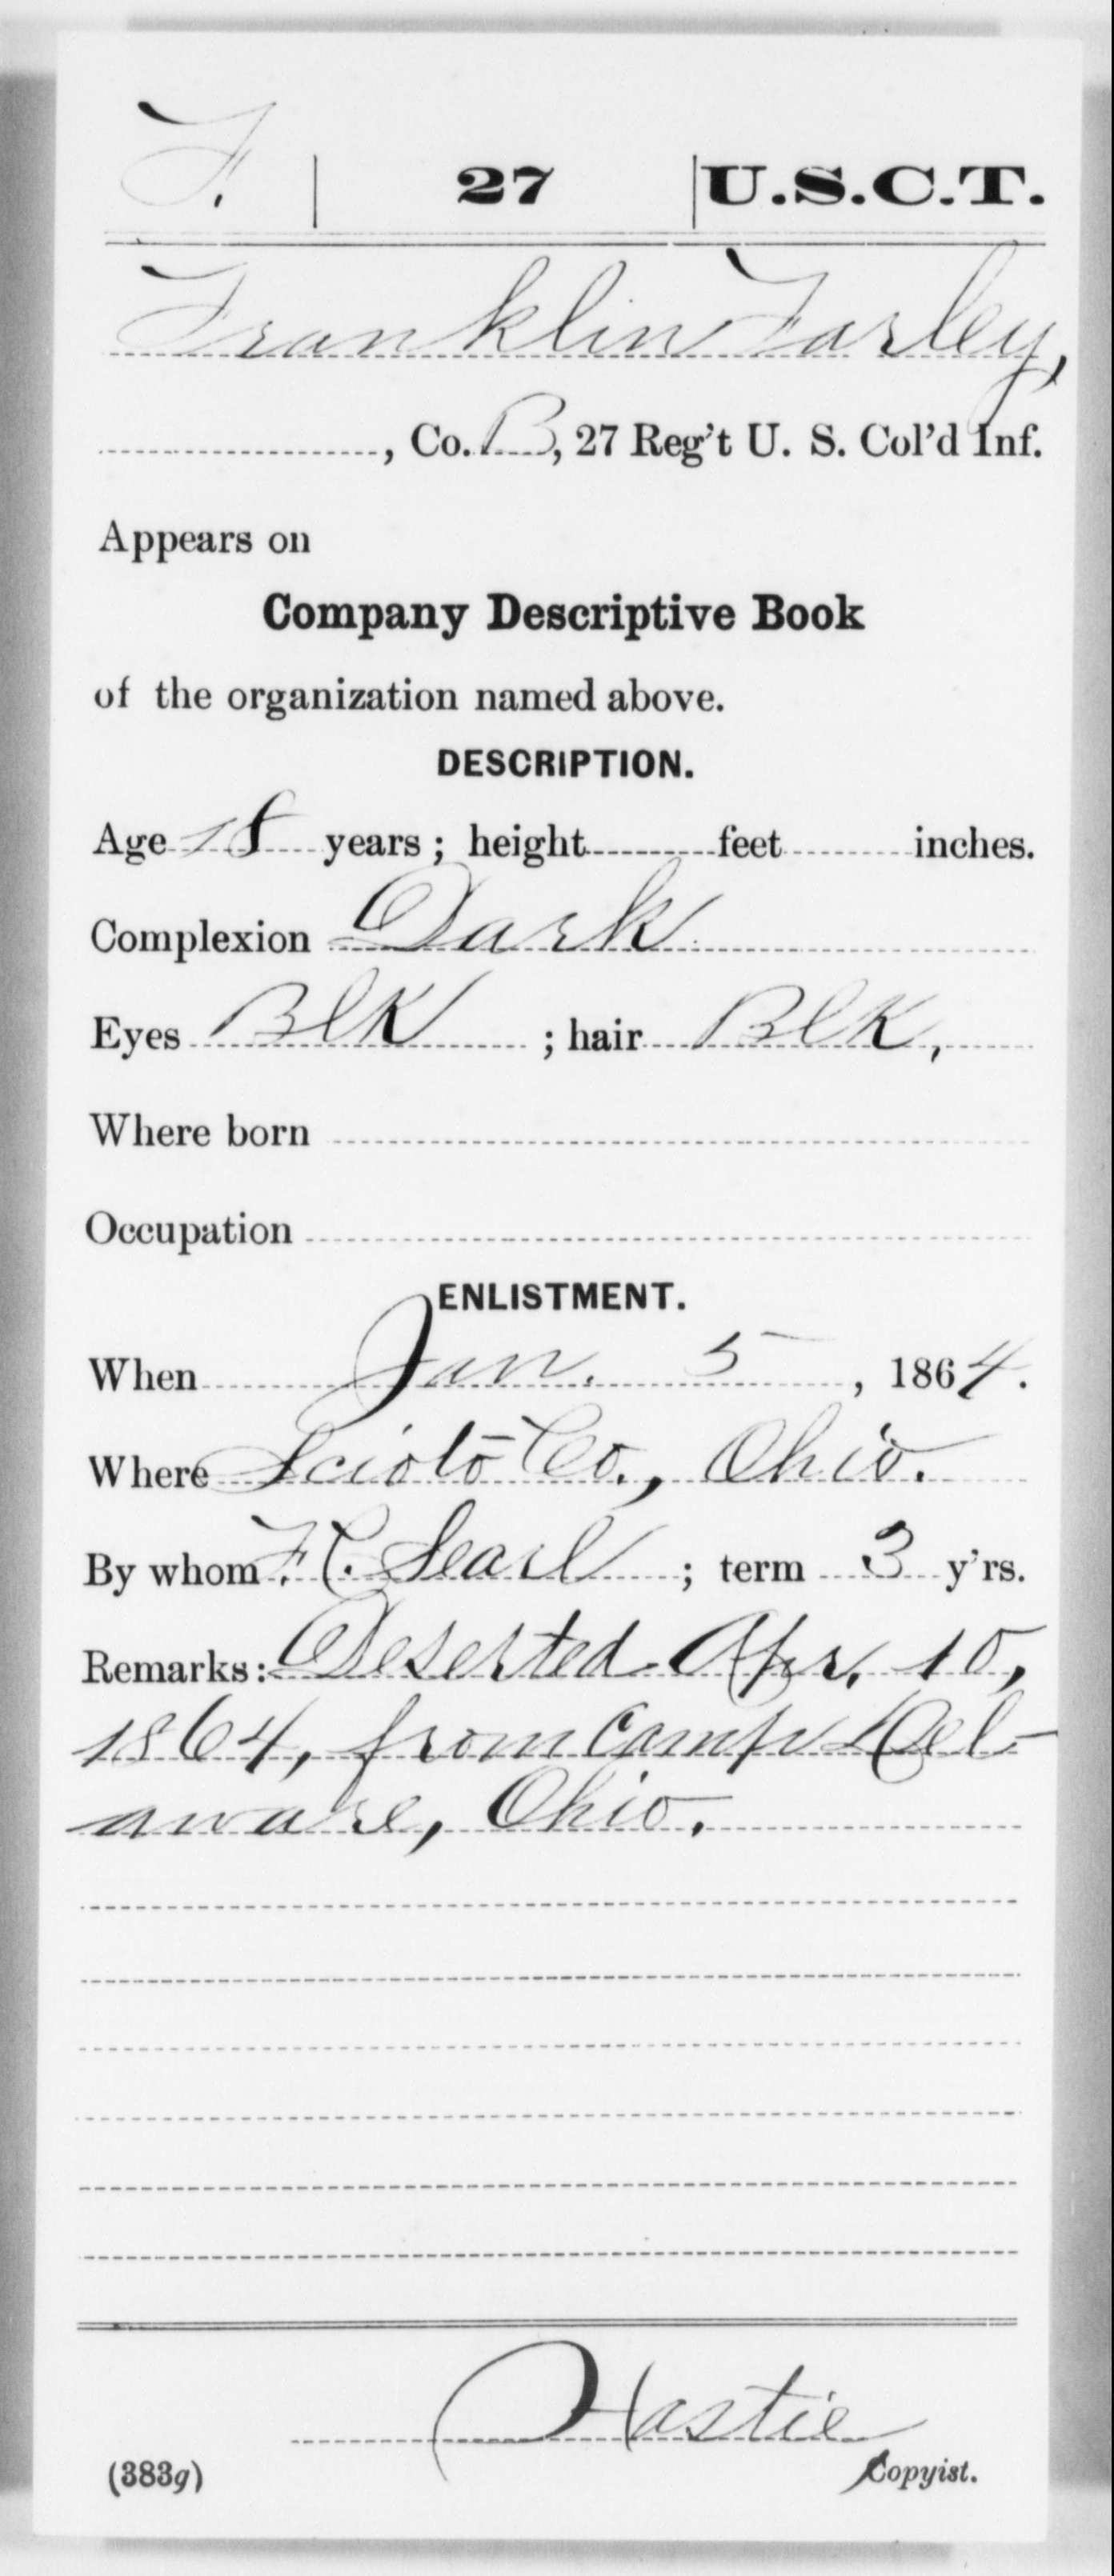 F. 27 U.S.C.T.
Franklin Farley,
, Co. B, 27 Reg't U. S. Col'd Inf.
Appears on
Company Descriptive Book
of the organization named above.
DESCRIPTION.
Age 18 years; height feet inches.
Complexion Dark
Eyes Blk ; hair Blk,
Where born
Occupation
ENLISTMENT.
When Jan. 5 , 1864.
Where Scioto Co., Ohio.
By whom F. C. Searl ; term 3 y'rs.
Remarks: Deserted Apr. 10,
1864, from Camp Del-
aware, Ohio.
Hastie
(383g) Copyist.